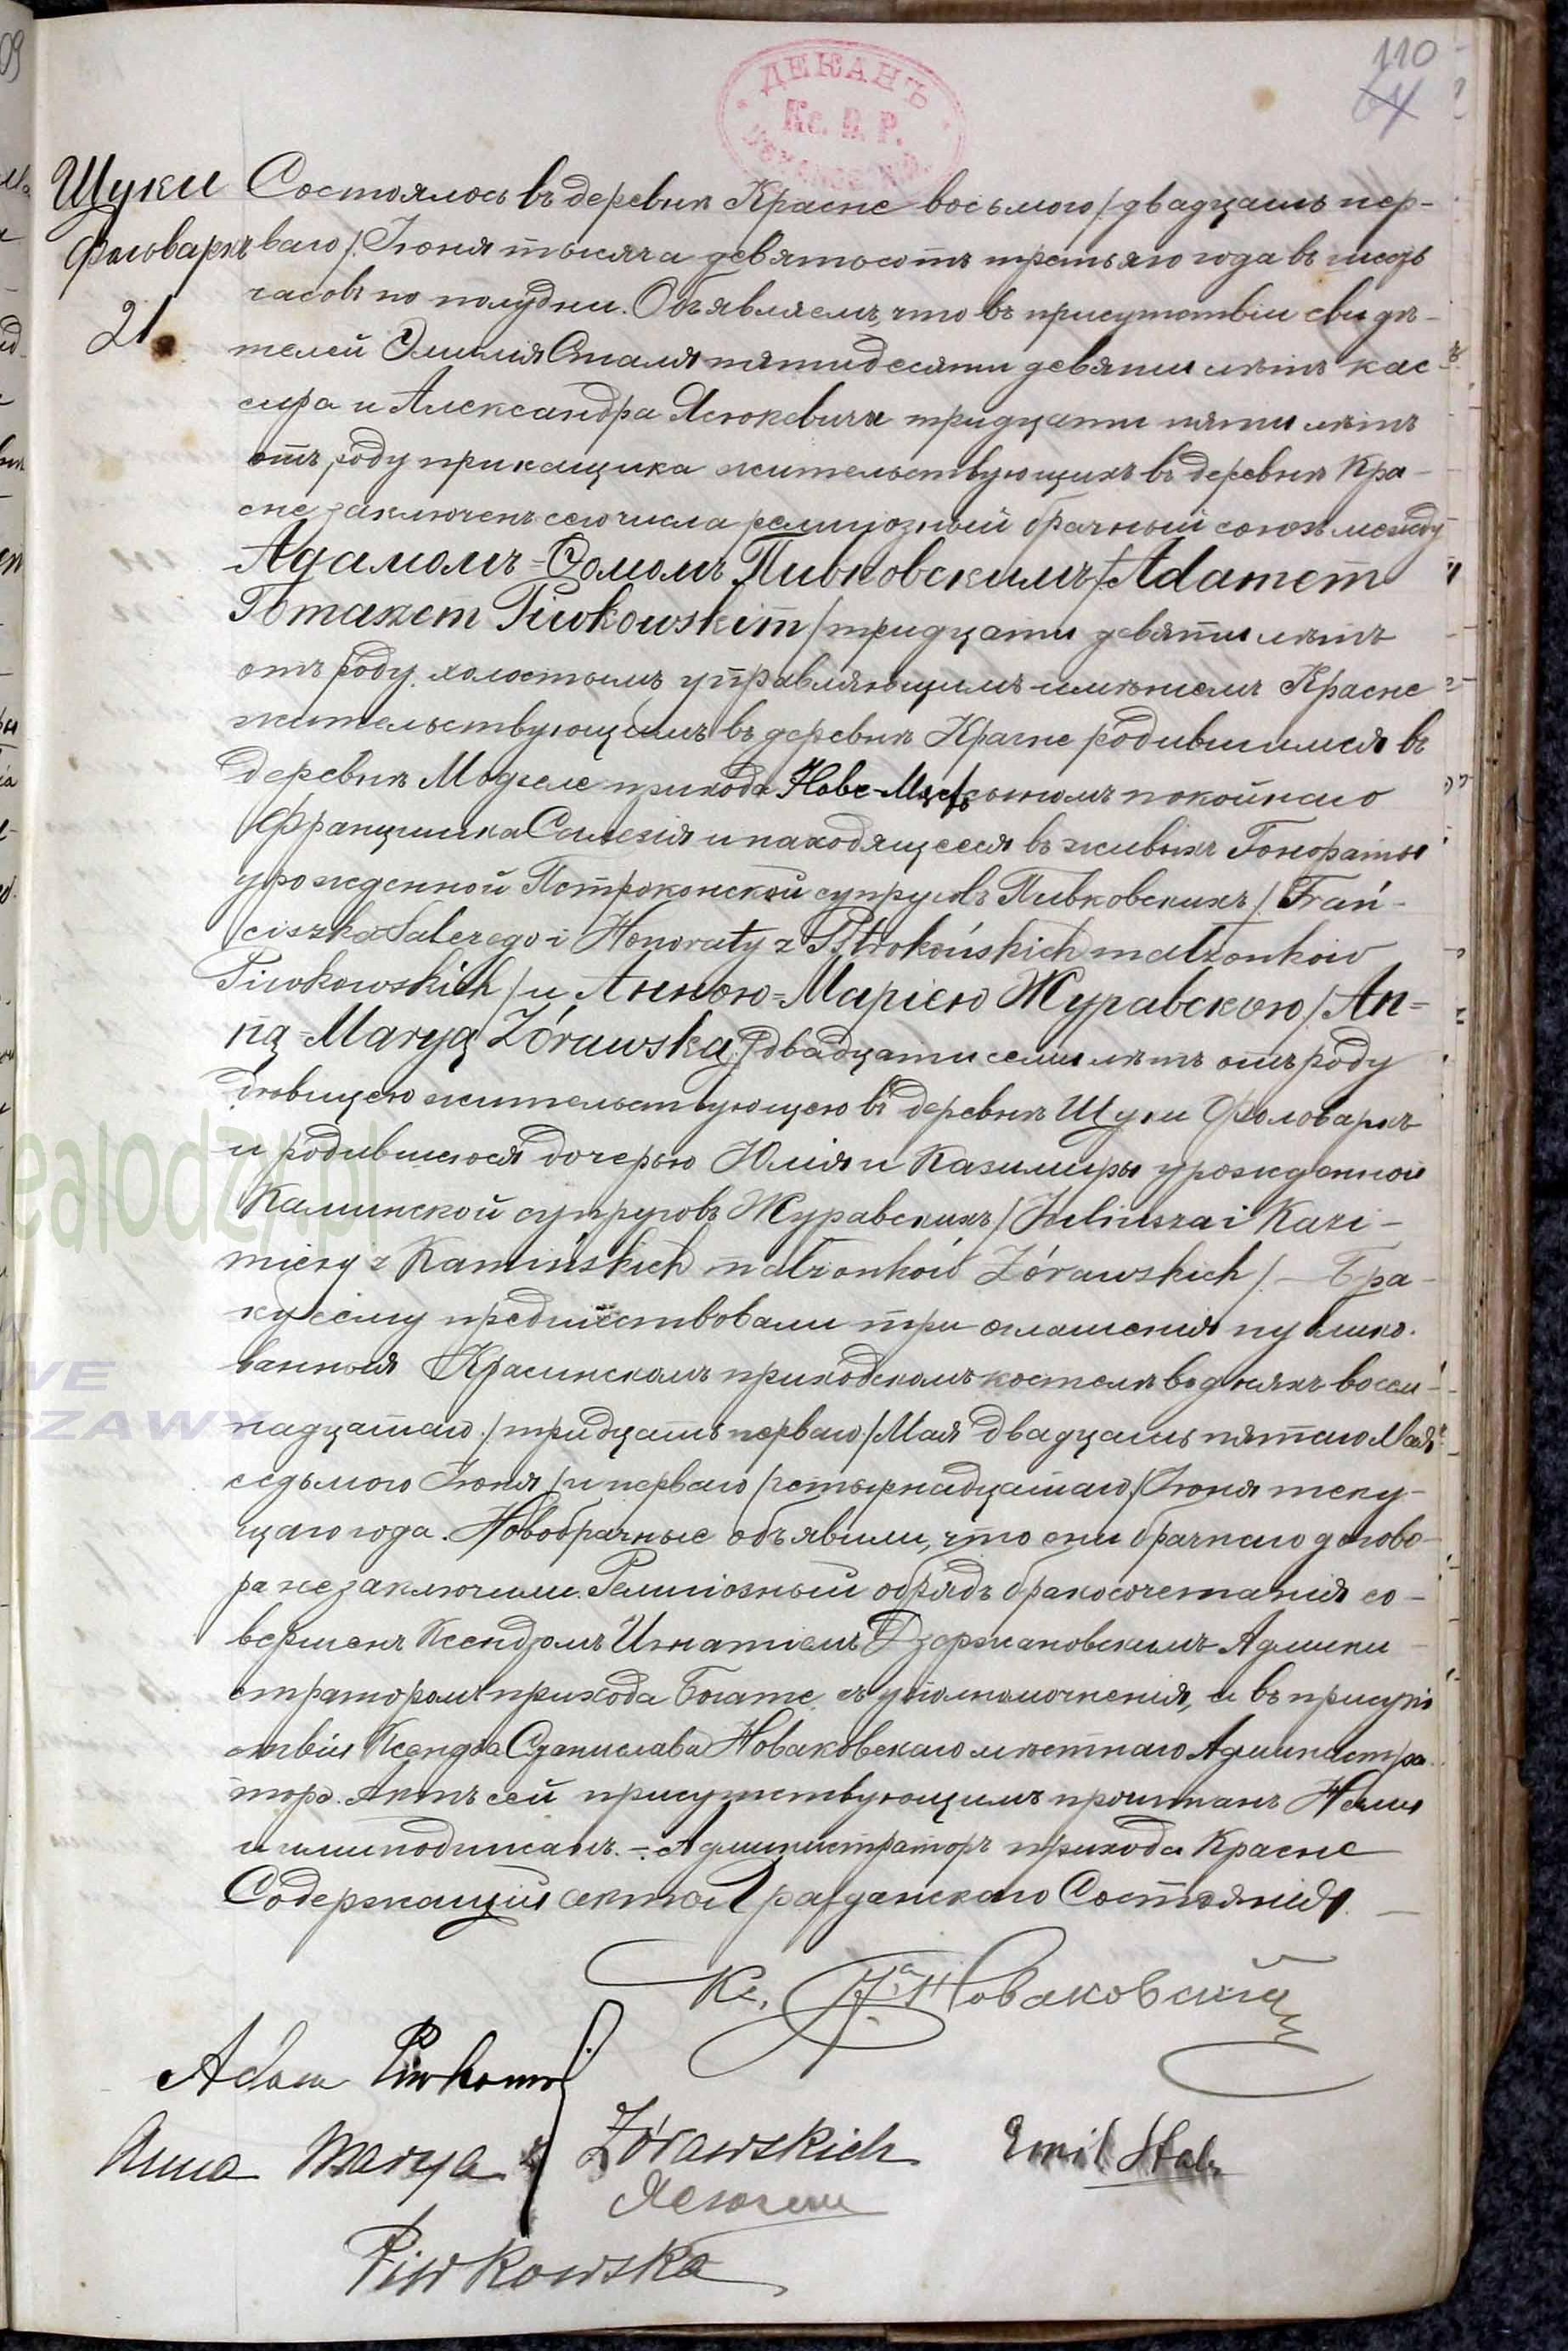 110
64
ДЕКАНЪ
Кс. П. Р.
Щуки
Фольваркъ
21
Состоялось въ деревнѣ Красне восьмого /двадцать пер-
ваго/ Іюня тысяча девятьсотъ третьяго года въ шесть
часовъ по полудни. Объявляемъ, что въ присутствіи свидѣ-
телей Эмилія Сталя пятидесяти девяти лѣтъ кас-
сира и Александра Ясюкевича тридцати пяти лѣтъ
отъ роду прикащика жительствующихъ въ деревнѣ Кра-
сне заключенъ сего числа религіозный брачный союзъ между
Адамомъ-Ѳомомъ Пивковскимъ /Adamem
Tomaszem Piwkowskim/ тридцати девяти лѣтъ
отъ роду, холостымъ управляющимъ имѣніемъ Красне
жительствующимъ въ деревнѣ Красне родившимся въ
деревнѣ Модзеле прихода Нове-Място сыномъ покойнаго
Францишка Салезія и находящееся въ живыхъ Гонораты
урожденной Пстроконской супруговъ Пивковскихъ /Fran-
ciszka Salezego i Honoraty z Pstrokońskich małżonków
Piwkowskich/ и Анною-Маріею Журавскою /An-
ną-Maryą Żórawską/ двадцати семи лѣтъ отъ роду
дѣвицею жительствующею въ деревнѣ Щуки Фольваркъ
и родившеюся дочерью Юлія и Казимиры урожденной
Каминской супруговъ Журавскихъ /Juliusza i Kazi-
miery z Kamińskich małżonków Żórawskich/. – Бра-
ку сему предшествовали три оглашенія публико-
ванныя Красинскомъ приходскомъ костелѣ въ дняхъ восем-
надцатаго /тридцать перваго/ Мая двадцать пятаго Мая
седьмого Іюня/ и перваго /четырнадцатаго/ Іюня теку-
щаго года. Новобрачные объявили, что они брачнаго догово-
ра не заключили. Религіозный обрядъ бракосочетанія со-
вершенъ Ксендзомъ Игнатіемъ Дзержановскимъ Админи-
страторомъ прихода Богате съ уполномоченія, и въ присут-
ствіи Ксендза Станислава Новаковскаго мѣстнаго Администра-
тора. Актъ сей присутствующимъ прочитанъ Нами
и ими подписанъ. – Администраторъ прихода Красне
Содержащій акты Гражданскаго Состоянія. –
Кс. Новаковскій
Adam Piwkowski
Anna Marya z Żórawskich
Emil Stahl
Piwkowska